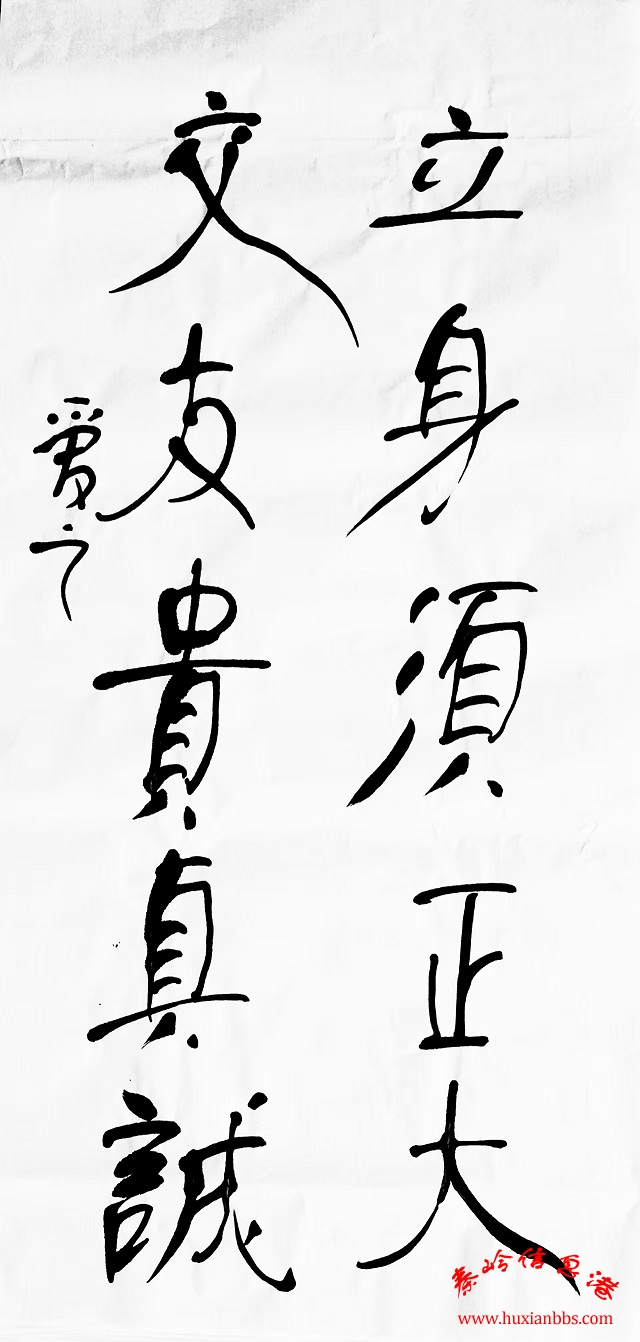 立身須正大
交友貴真誠
秦岭信息港
www.huxianbbs.com